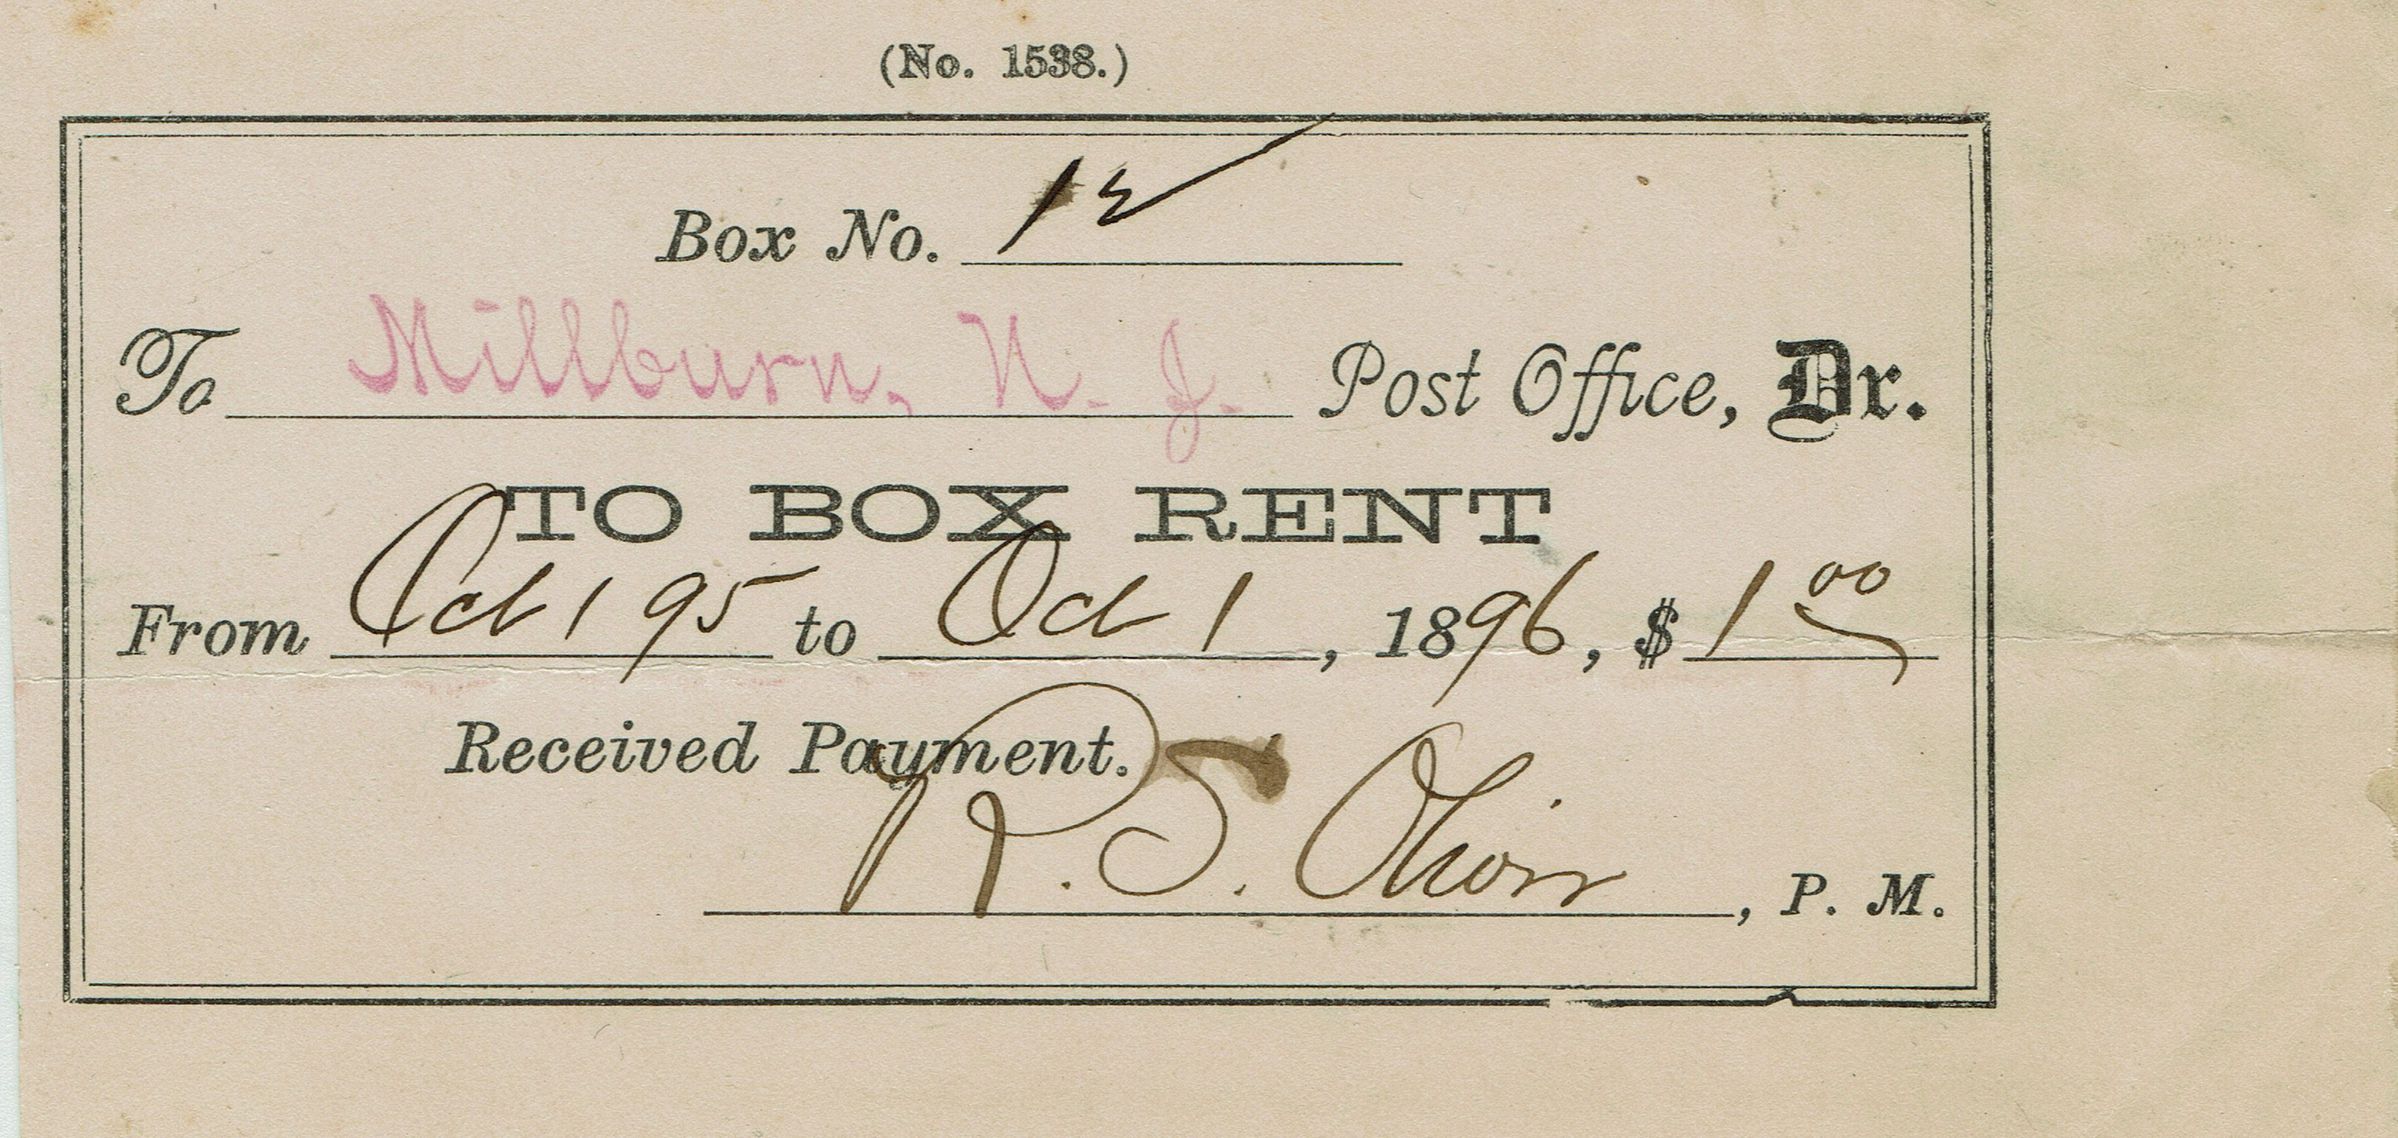 (No. 1538.)
Box No. 12
To Millburn, N. J. Post Office, Dr.
TO BOX RENT
From Oct 1 95 to Oct 1, 1896, $ 1 00
Received Payment.
R. S. , P. M.